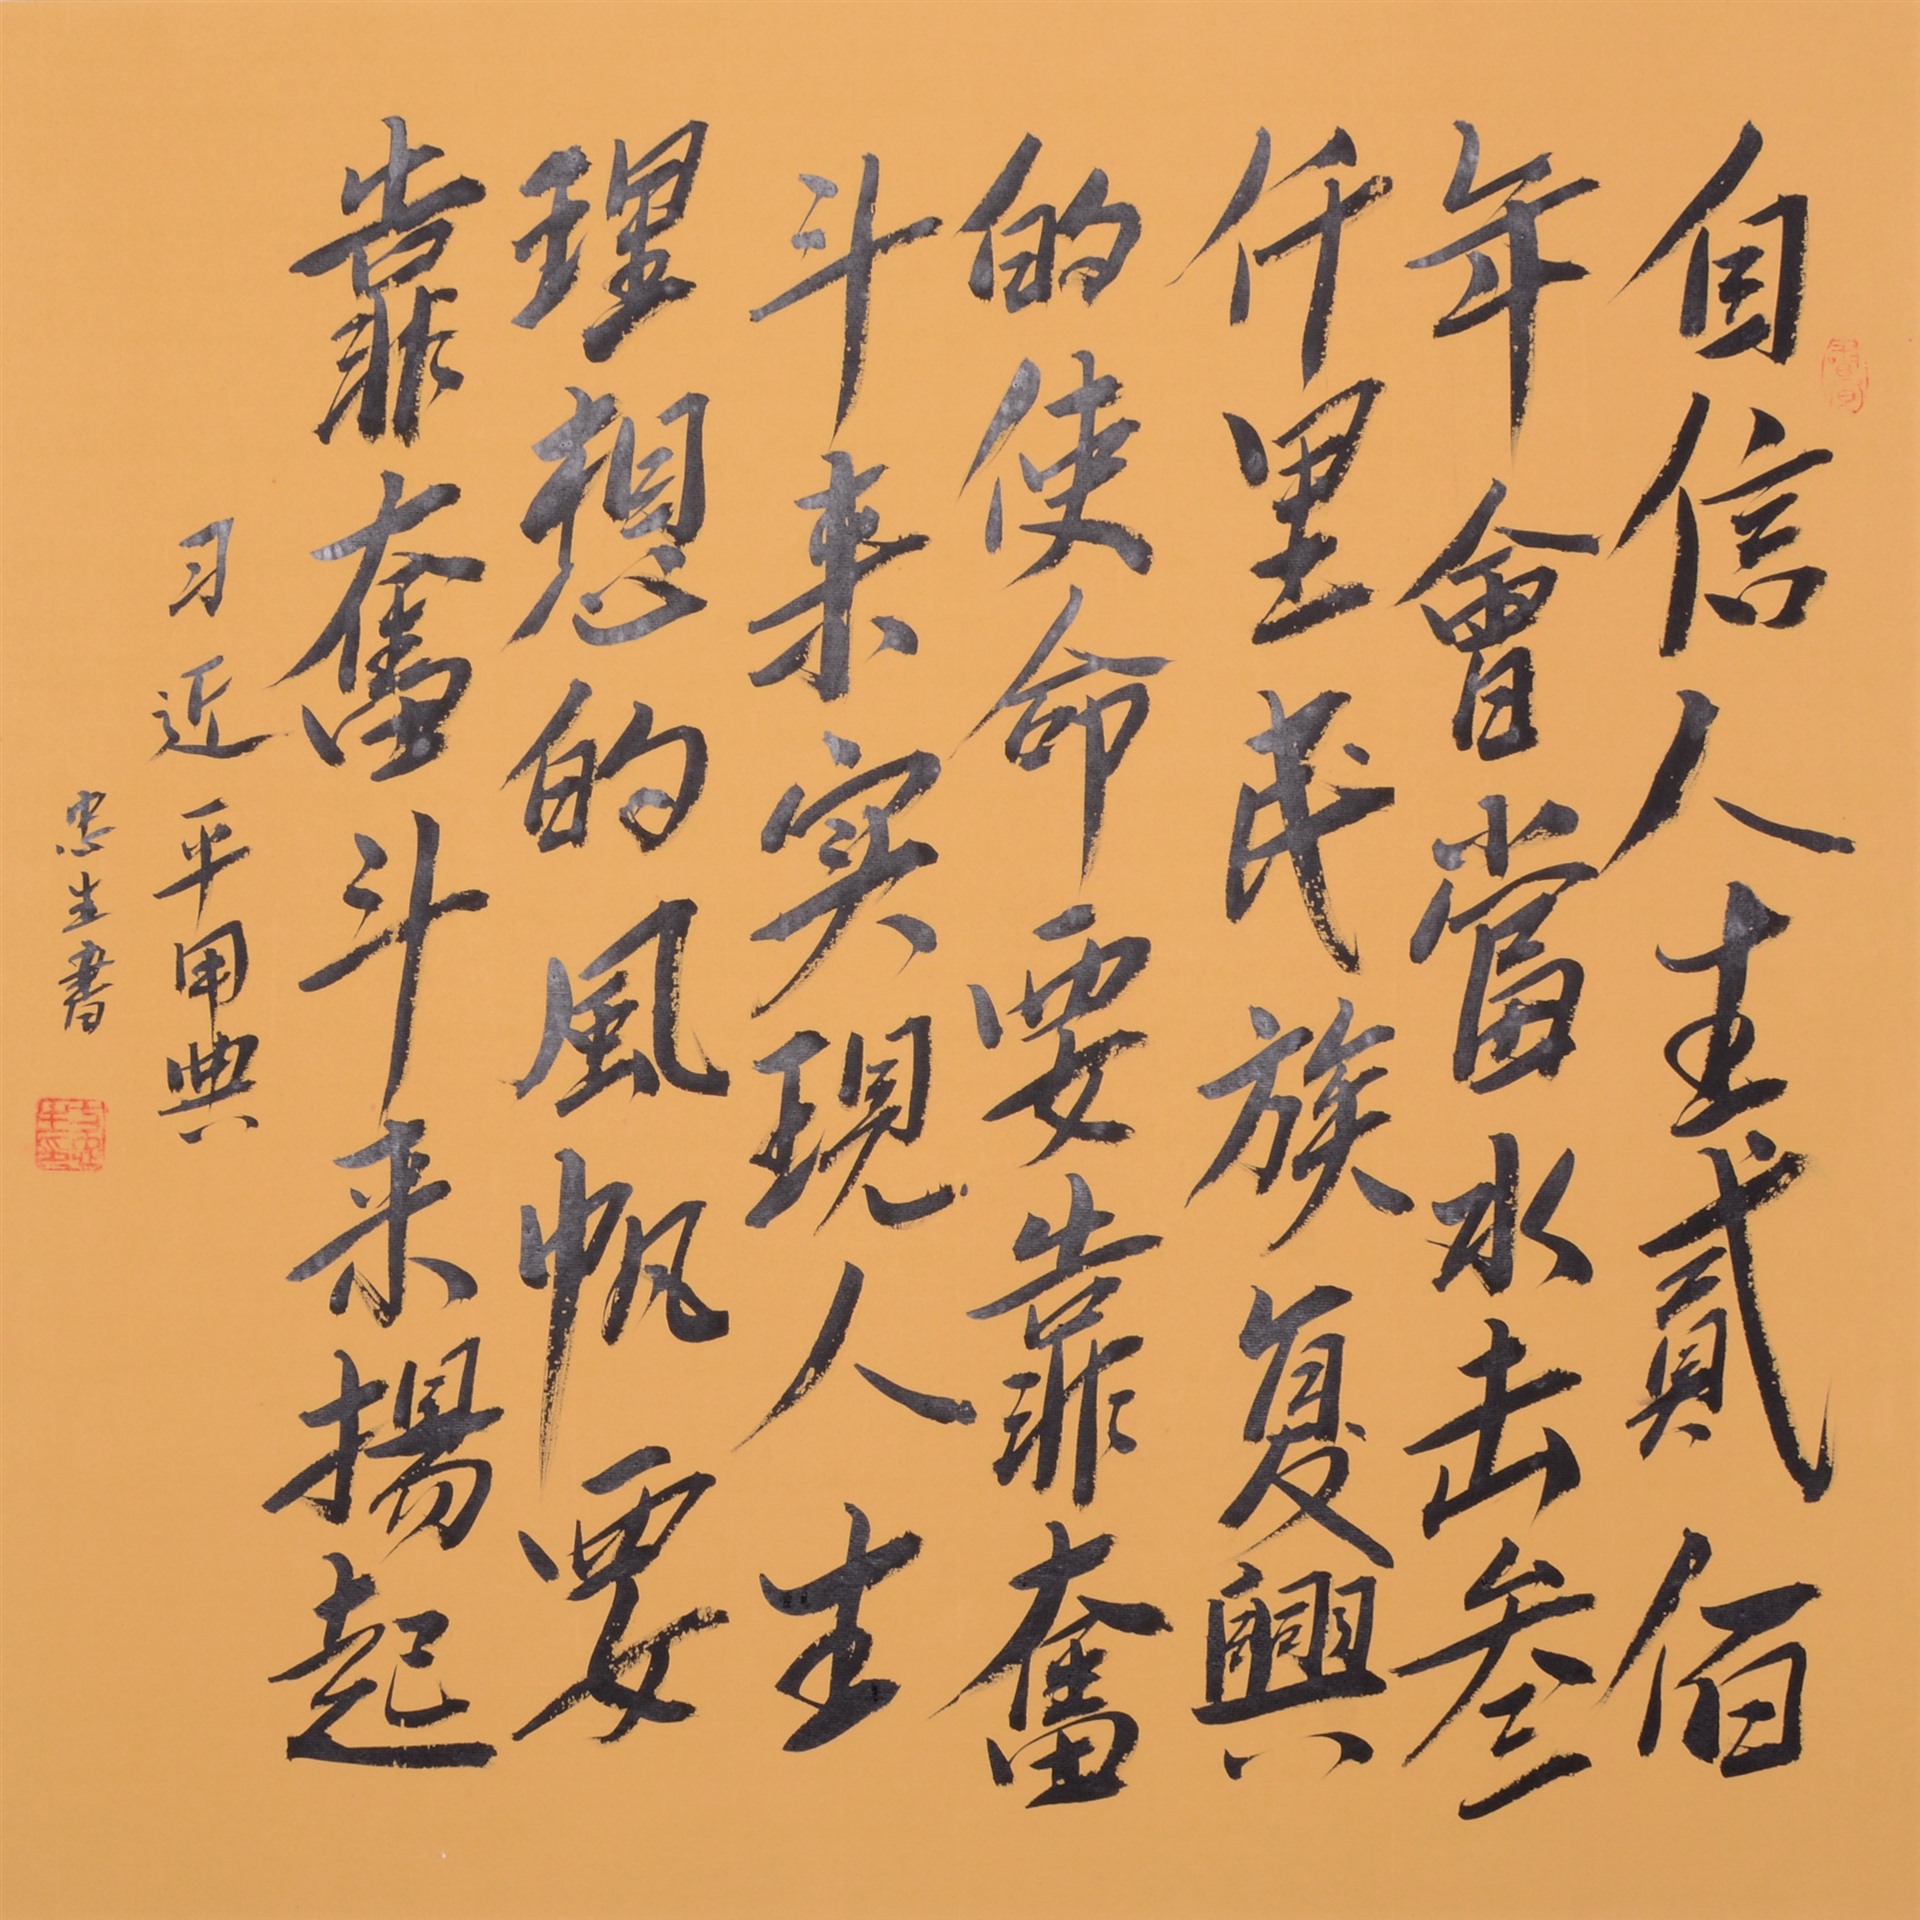 自信人生貳佰
年會當水击叁
仟里民族复興
的使命要靠奮
斗来实現人生
理想的風帆要
靠奮斗来揚起
习近平用典
忠生書